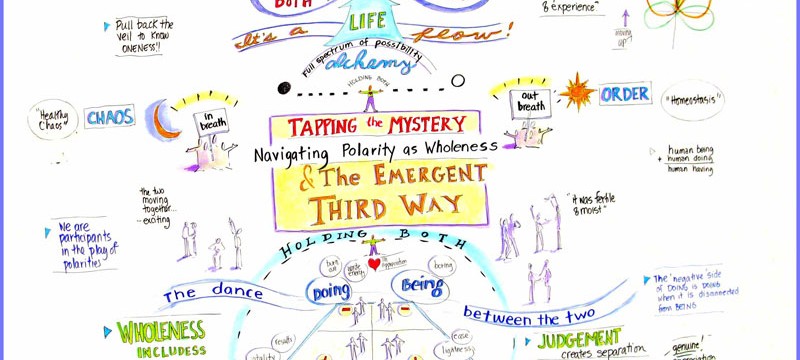 BOTH
LIFE
It's a flow!
& experience"
moving
up?
Pull back the
veil to know
ONENESS!!
Full spectrum of possibility
alchemy
HOLDING BOTH
"Healthy
Chaos"
CHAOS
in
breath
out
breath
ORDER
"Homeostasis"
TAPPING the MYSTERY
Navigating Polarity as Wholeness
& The EMERGENT
THIRD WAY
human being
+ human doing
human having
the two
moving
together...
exciting
"it was fertile
& moist"
"We are
participants
in the play of
polarities"
HOLDING BOTH
burn
out
boring
Doing
Being
The dance
between the two
The "negative side
of DOING is DOING
when it is disconnected
from BEING
WHOLENESS
INCLUDESS
results
vitality
ease
lightness
JUDGEMENT
creates separation
genuine